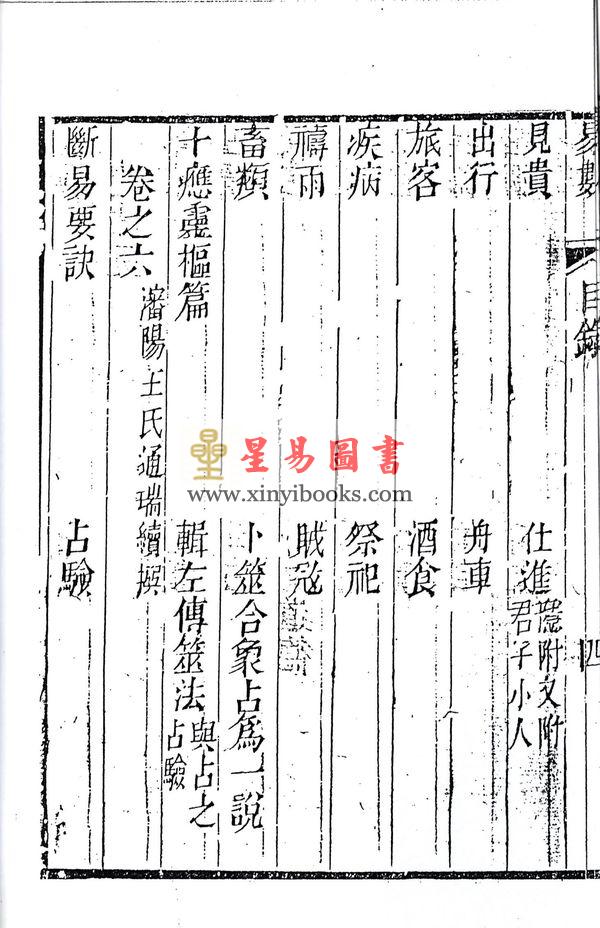 易數 目錄 四
見貴 仕進 應附又附 君子小人
出行 舟車
旅客 酒食
疾病 祭祀
禱雨 賊寇
畜類 卜筮合象占爲一說
十應靈樞篇 輯左傳筮法 與占之 占驗
卷之六 瀋陽王氏通瑞續撰
斷易要訣 占驗
星易圖書
www.xinyibooks.com